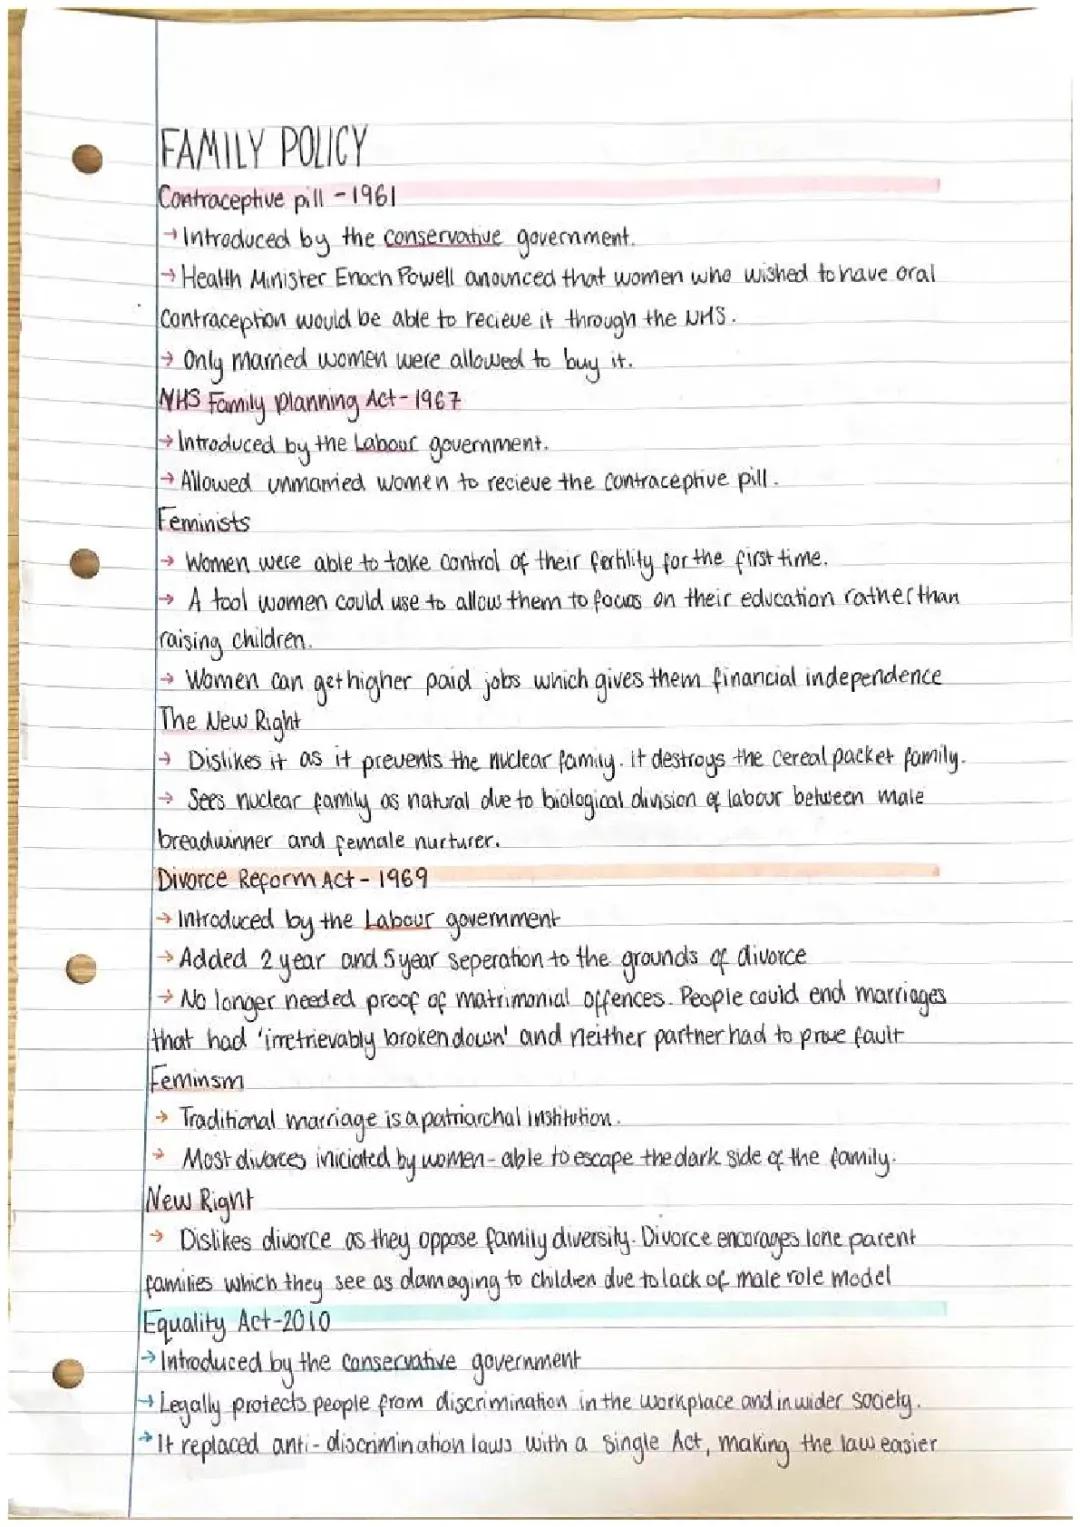 FAMILY POLICY
Contraceptive pill - 1961
→ Introduced by the conservative government.
→ Health Minister Enoch Powell anounced that women who wished to have oral
contraception would be able to recieve it through the NHS.
→ Only married women were allowed to buy it.
NHS Family planning Act - 1967
→ Introduced by the Labour government.
→ Allowed unmarried women to recieve the contraceptive pill.
Feminists
→ Women were able to take control of their fertility for the first time.
→ A tool women could use to allow them to focus on their education rather than
raising children.
→ Women can get higher paid jobs which gives them financial independence
The New Right
→ Dislikes it as it prevents the nuclear family. it destroys the cereal packet family.
→ Sees nuclear family as natural due to biological division of labour between male
breadwinner and female nurturer.
Divorce Reform Act - 1969
→ Introduced by the Labour government
→ Added 2 year and 5 year seperation to the grounds of divorce
→ No longer needed proof of matrimonial offences. People could end marriages
that had 'irretrievably broken down' and neither partner had to prove fault
Feminsm
→ Traditional marriage is a patriarchal institution.
→ Most divorces iniciated by women - able to escape the dark side of the family.
New Right
→ Dislikes divorce as they oppose family diversity. Divorce encorages lone parent
families which they see as damaging to children due to lack of male role model
Equality Act - 2010
→ Introduced by the conservative government
→ Legally protects people from discrimination in the workplace and in wider society.
→ It replaced anti-discrimination laws with a single Act, making the law easier